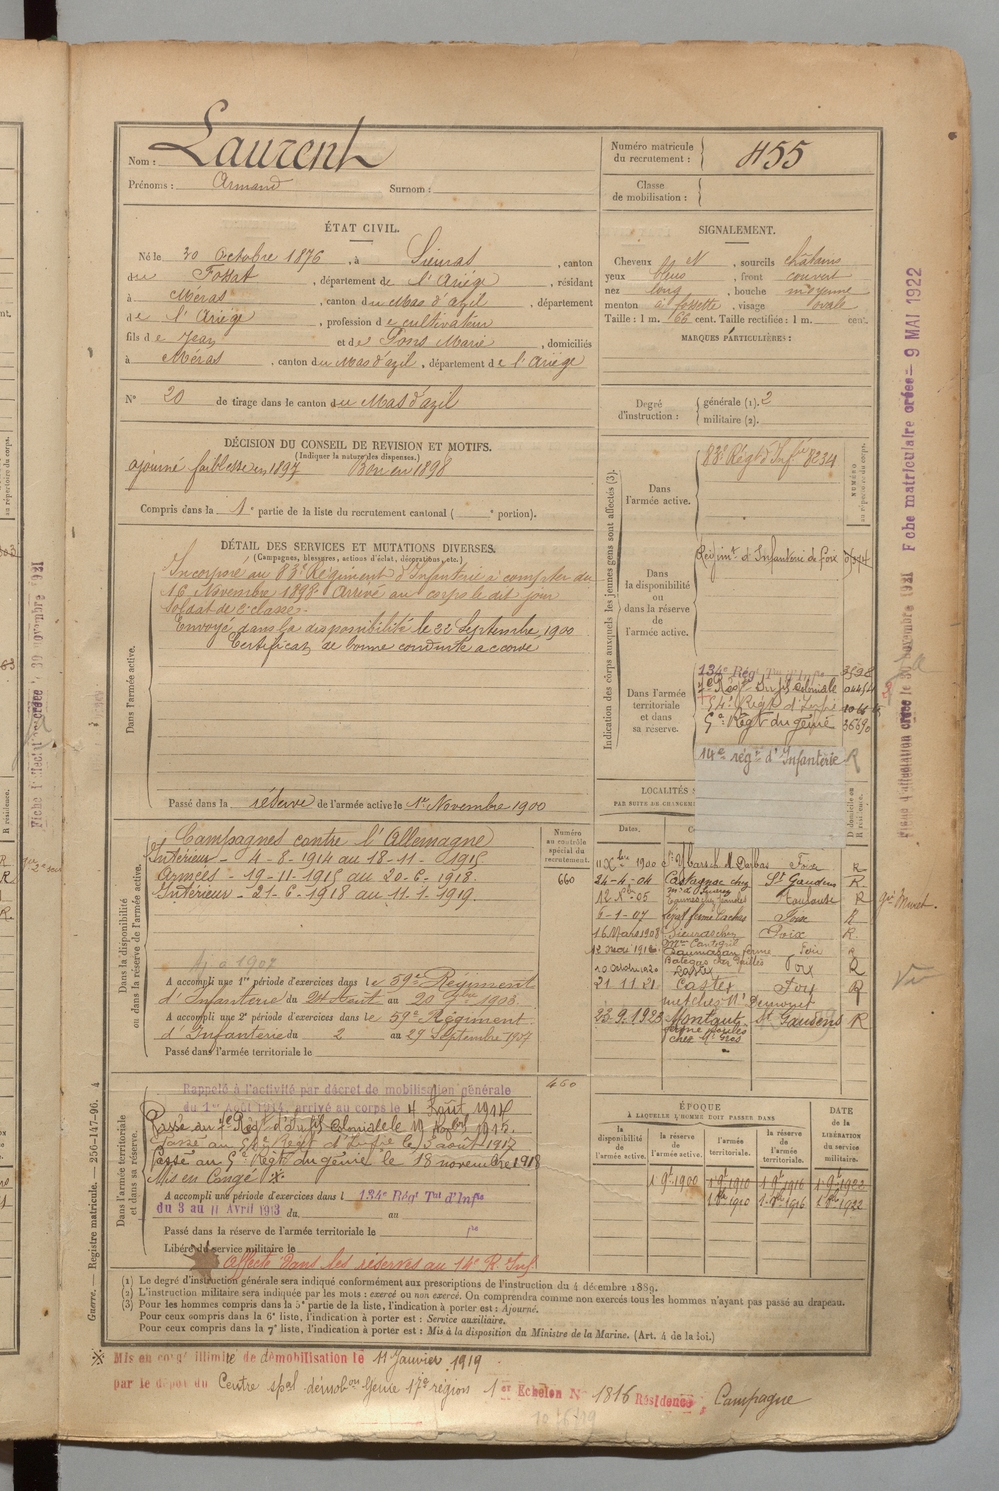 Nom : Laurent
Prénoms : Armand Surnom :
Numéro matricule du recrutement : 455
Classe de mobilisation :
ÉTAT CIVIL.
Né le 20 Octobre 1876, à Sieuras, canton
du Fossat, département de l'Ariège, résidant
à Méras, canton du Mas d'azil, département
de l'Ariège, profession de cultivateur
fils de Jean et de Pons Marie, domiciliés
à Méras, canton du Mas d'azil, département de l'Ariège
N° 20 de tirage dans le canton du Mas d'azil
SIGNALEMENT.
Cheveux et N, sourcils châtains
yeux bleus, front couvert
nez long, bouche moyenne
menton à fossette, visage ovale
Taille : 1 m. 66 cent. Taille rectifiée : 1 m. cent.
MARQUES PARTICULIÈRES :
Degré d'instruction : générale (1). 2
militaire (2).
DÉCISION DU CONSEIL DE REVISION ET MOTIFS.
(Indiquer la nature des dispenses.)
ajourné faiblesse en 1897 Bon en 1898
Compris dans la 1e partie de la liste du recrutement cantonal ( e portion).
DÉTAIL DES SERVICES ET MUTATIONS DIVERSES.
(Campagnes, blessures, actions d'éclat, décorations, etc.)
Dans l'armée active.
Incorporé au 83e Régiment d'Infanterie à compter du
16 Novembre 1898 Arrivé au corps le dit jour
Soldat de 2e classe.
Envoyé dans la disponibilité le 22 Septembre 1900
Certificat de bonne conduite accordé
Passé dans la réserve de l'armée active le 1er Novembre 1900
Indication des corps auxquels les jeunes gens sont affectés (3).
NUMÉRO au répertoire du corps.
Dans l'armée active.
83e Régt d'Infie 8234
Dans la disponibilité ou dans la réserve de l'armée active.
Régimt d'Infanterie de Foix
Dans l'armée territoriale et dans sa réserve.
134e Régt Tal d'Infie
Régt Inf Coloniale
54e Régt d'Infie
5e Régt du génie
14e régt d'Infanterie R
LOCALITÉS
PAR SUITE DE CHANGEM
Dates.
D domicile ou R résidence.
Dans la disponibilité ou dans la réserve de l'armée active.
Numéro au contrôle spécial du recrutement.
660
Campagnes contre l'Allemagne
Intérieur - 4-8-1914 au 18-11-1915
Armées - 19-11-1915 au 20-6-1918.
Intérieur - 21-6-1918 au 11-1-1919.
Aj à 1907
A accompli une 1re période d'exercices dans le 59e Régiment
d'Infanterie du 24 Août au 20 7bre 1903.
A accompli une 2e période d'exercices dans le 59e Régiment
d'Infanterie du 2 au 29 Septembre 1907
Passé dans l'armée territoriale le
11 Xbre 1900 Foix R
24-4-04 Castagnac chez St Gaudens R
12 Xbre 05 Toulouse R
6-1-07 Foix R
16 Mars 1908 Sieuras chez Foix R
12 mai 1916 ferme Foix R
20 octobre 1920 Lastex Foix R
21 11 21 Castex Foix R
23.9.1923 Montaut St Gaudens R
460
Dans l'armée territoriale et dans sa réserve.
Rappelé à l'activité par décret de mobilisation générale
du 1er Août 1914, arrivé au corps le 4 Août 1914
Passé au 7e Régt d'Infie Coloniale le 19 1915.
Passé au 54e Régt d'Infie le 3 août 1917
Passé au 5e Régt du génie le 18 novembre 1918
Mis en Congé ※
A accompli une période d'exercices dans l 134e Régt Tal d'Infie
du 3 au 11 Avril 1913 du au
Passé dans la réserve de l'armée territoriale le
Libéré du service militaire le
Affecté dans les réserves au 14e R. Inf
ÉPOQUE
À LAQUELLE L'HOMME DOIT PASSER DANS
la disponibilité de l'armée active.
la réserve de l'armée active.
l'armée territoriale.
la réserve de l'armée territoriale.
DATE de la LIBÉRATION DU SERVICE militaire.
1 9bre 1900 1 9bre 1910 1 9bre 1916 1 9bre 1922
1 8bre 1910 1 8bre 1916 1 8bre 1922
(1) Le degré d'instruction générale sera indiqué conformément aux prescriptions de l'instruction du 4 décembre 1889.
(2) L'instruction militaire sera indiquée par les mots : exercé ou non exercé. On comprendra comme non exercés tous les hommes n'ayant pas passé au drapeau.
(3) Pour les hommes compris dans la 5e partie de la liste, l'indication à porter est : Ajourné.
Pour ceux compris dans la 6e liste, l'indication à porter est : Service auxiliaire.
Pour ceux compris dans la 7e liste, l'indication à porter est : Mis à la disposition du Ministre de la Marine. (Art. 4 de la loi.)
※ Mis en congé illimité de démobilisation le 11 Janvier 1919.
par le dépot du Centre spal démobon Génie 17e région 1er Echelon N° 1816 Résidence, Campagne
Guerre. — Registre matricule. — 256-147-96. 4
Fiche matriculaire créée 9 MAI 1922
Fiche d'affectation créée le 30 novembre 1931